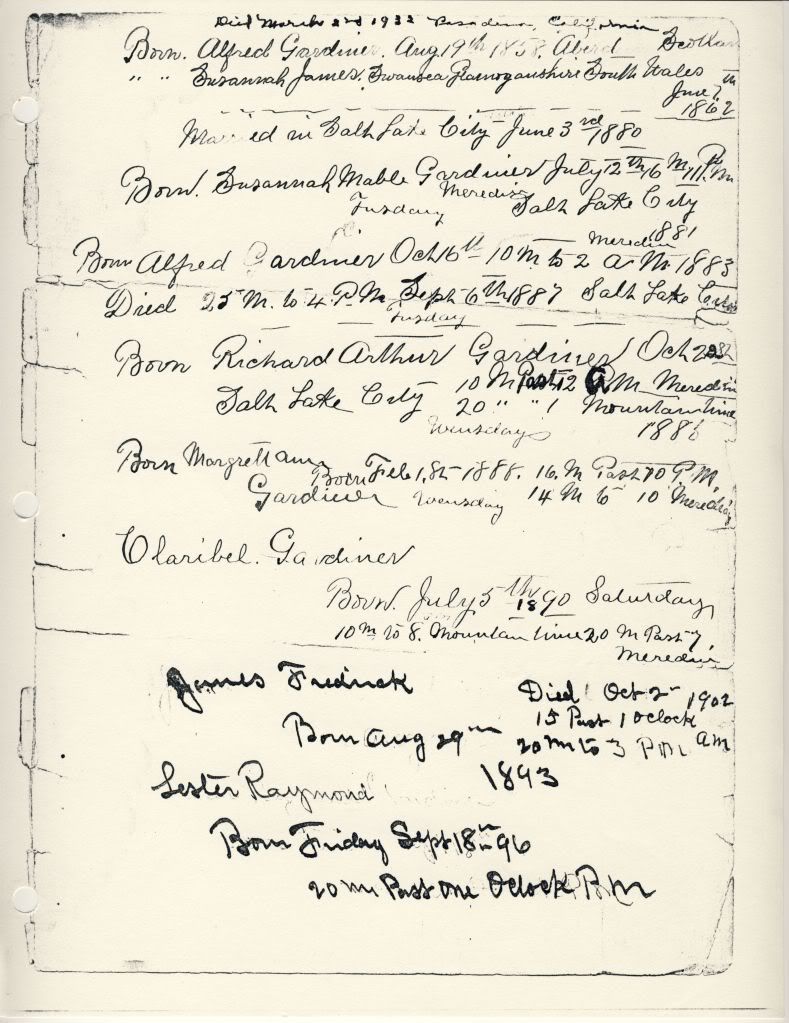 Died March 2nd 1932 Pasadena, California
Born. Alfred Gardiner. Aug 19th 1858. Aberd Scotlan
" " Susannah James. Swansea Glamoganshire South Wales in
June 7
1862
Married in Salt Lake City June 3rd 1880
Born. Susannah Mable Gardiner July 12th 16 M P.M
Meredin
Tusday Salt Lake City
1881
Meredin
Born Alfred Gardiner Oct 16th 10 M to 2 A M. 1883
Died 25 M. to 4. P.M. Sept 6th 1887 Salt Lake
Tusday
Born Richard Arthur Gardiner Oct
10 M Past 12 A M Meredin
Salt Lake City 20 " " 1 Mountan time
Wensday 1886
Born Margrett ann
Born Feb 1.st 1888. 16. M Past 10 P.M.
Gardiner Wensday 14 M to 10 Meredian
Claribel. Gardiner
Born. July 5th 1890 Saturday
10 M to 8. Mountan time 20 M Past 7
Meredin
James Fredrick
Died Oct 2 1902
15 Past 1 oclock
am
Born Aug 29 20 M to 3 P.M
1893
Lester Raymond
Born Friday Sept 18 96
20 M Past One Oclock P.M